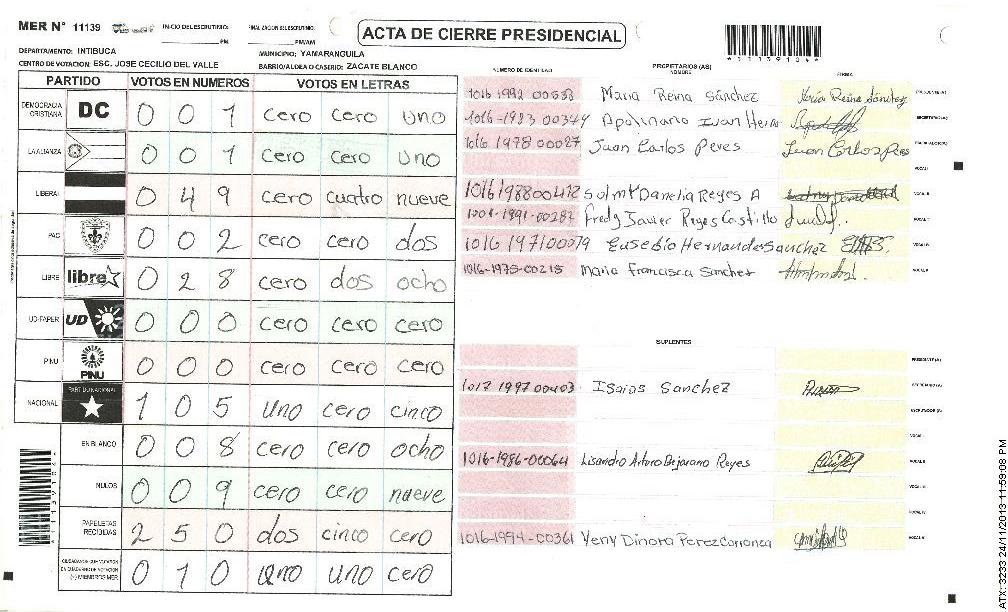 MER N° 11139
INICIO DEL ESCRUTINIO: PM
FINALIZACION DEL ESCRUTINIO: PM/AM
ACTA DE CIERRE PRESIDENCIAL
*1113910 4*
DEPARTAMENTO: INTIBUCA
MUNICIPIO: YAMARANGUILA
CENTRO DE VOTACION: ESC. JOSE CECILIO DEL VALLE
BARRIO/ALDEA O CASERIO: ZACATE BLANCO
PARTIDO VOTOS EN NUMEROS VOTOS EN LETRAS
DEMOCRACIA CRISTIANA DC 0 0 1 cero cero uno
LA ALIANZA 0 0 1 cero cero uno
LIBERAL 0 4 9 cero cuatro nueve
PAC 0 0 2 cero cero dos
LIBRE libre 0 2 8 cero dos ocho
UD-FAPER UD 0 0 0 cero cero cero
PINU PINU 0 0 0 cero cero cero
NACIONAL PARTIDO NACIONAL 1 0 5 uno cero cinco
EN BLANCO 0 0 8 cero cero ocho
NULOS 0 0 9 cero cero nueve
PAPELETAS RECIBIDAS 2 5 0 dos cinco cero
CIUDADANOS QUE VOTARON EN CUADERNO DE VOTACION (+) MIEMBROS MER 0 1 0 uno cero
NUMERO DE IDENTIDAD PROPIETARIOS (AS) NOMBRE FIRMA
1016 1992 Maria Reina Sánchez Maria Reina Sánchez PRESIDENTE (A)
1016-1983 00344 Apolinario Ivan Herna SECRETARIO (A)
1016 1978 00027 Juan Carlos Peres Juan Carlos Peres ESCRUTADOR (A)
VOCAL I
1016 1988 00412 Danelia Reyes A VOCAL II
1991-00287 Fredy Javier Reyes Castillo
1016 1971 00079 Eusebio Hernandes Sanchez
1016-1975-00215 Maria Francisca Sanchez
SUPLENTES
PRESIDENTE (A)
1017 1997 00403 Isaias Sanchez SECRETARIO (A)
ESCRUTADOR (A)
VOCAL I
1016-1986-00064 Lisandro Arturo Bejarano Reyes VOCAL II
VOCAL III
VOCAL IV
1016-1994-00361 Yeny Dinora Perez Carranza VOCAL V
ATX:3233 24/11/2013-11:59:08 PM